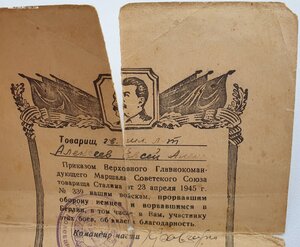 Товарищ гв. мл. л-т
Алексеев
Приказом Верховного Главнокоман-
дующего Маршала Советского Союза
товарища Сталина от 23 апреля 1945 г.
№ 339 нашим войскам, прорвавшим
оборону немцев и ворвавшимся в
Берлин, в том числе и Вам, участнику
этих боев, объявлена благодарность.
Командир части